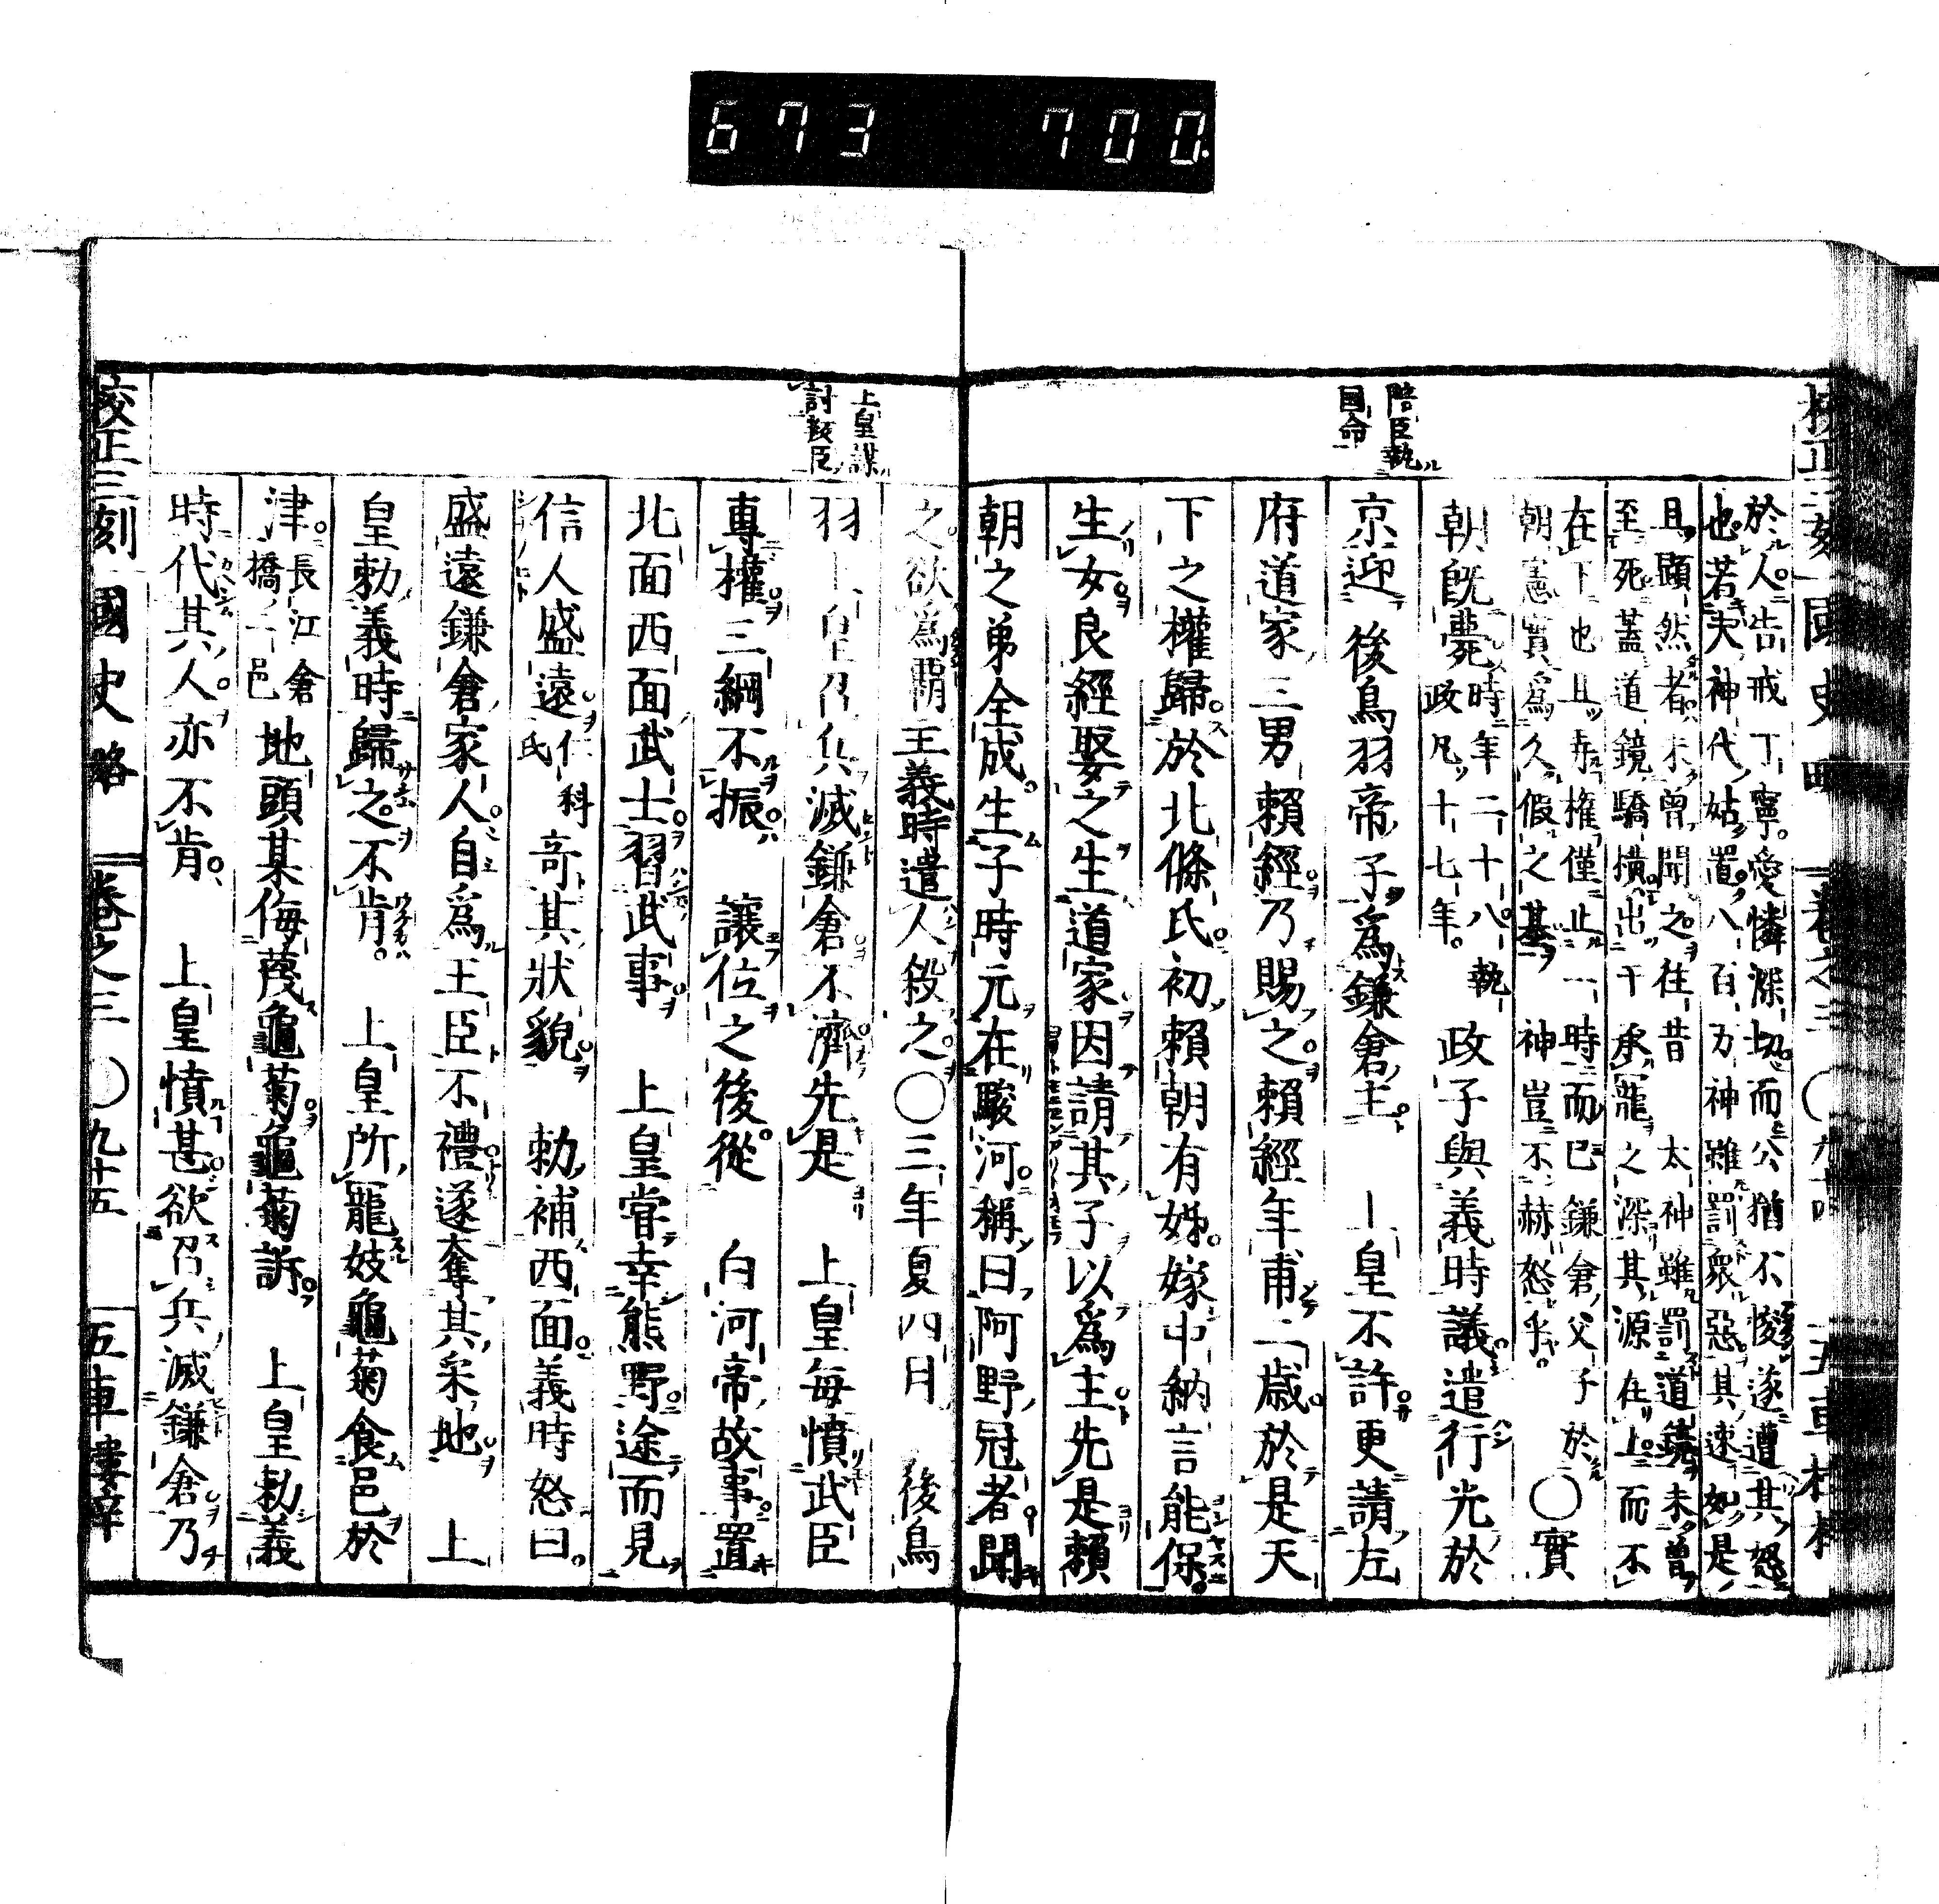 673 700.
陪臣執
國命
於人告戒丁寧愛憐深切而公猶不悛遂遭其怒
也若夫神代姑置八百万神雖罰衆惡其速如是
且顯然者未曾聞之往昔 太神雖罰道鏡未曾
至死蓋道鏡驕橫出于承寵之深其源在上而不
在下也且弄權僅止一時而已鎌倉父子於
朝憲實爲久假之基 神豈不赫怒乎
○實
朝既薨時年二十八執政凡十七年 政子與義時議遣行光於
京迎 後鳥羽帝子爲鎌倉主 上皇不許更請左
府道家三男賴經乃賜之賴經年甫二歳於是天
下之權歸於北條氏初賴朝有姊嫁中納言能保
生女良經娶之生道家因請其子以爲主先是賴
朝之弟全成生子時元在駿河稱曰阿野冠者聞
上皇謀
討救臣
之欲爲覇主義時遣人殺之○三年夏四月 後鳥
羽上皇召兵滅鎌倉不濟先是 上皇每憤武臣
專權三綱不振 讓位之後從 白河帝故事置
北面西面武士習武事 上皇嘗幸熊野途而見
信人盛遠仁科氏奇其狀貌 勅補西面義時怒曰
盛遠鎌倉家人自爲王臣不禮遂奪其采地 上
皇勅義時歸之不肯 上皇所寵妓龜菊食邑於
津長江倉橋二邑地頭某侮蔑龜菊龜菊訴 上皇勅義
時代其人亦不肯 上皇憤甚欲召兵滅鎌倉乃
校正三刻國史略 卷之三 ○九十五 五車樓梓